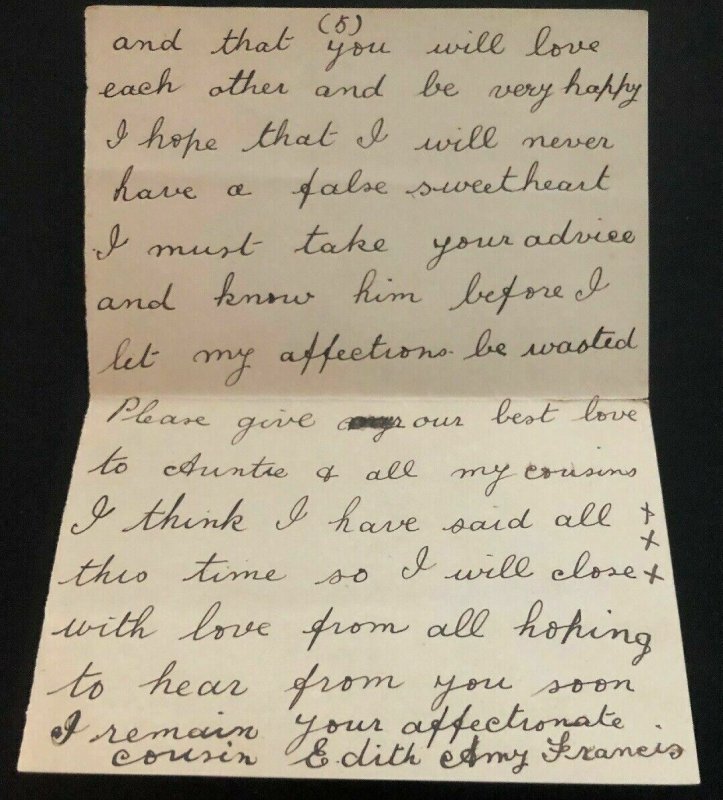 (5)
and that you will love
each other and be very happy
I hope that I will never
have a false sweetheart
I must take your advice
and know him before I
let my affections be wasted
Please give our best love
to Auntie & all my cousins
I think I have said all +
+
this time so I will close +
with love from all hoping
to hear from you soon
I remain your affectionate
cousin Edith Amy Francis